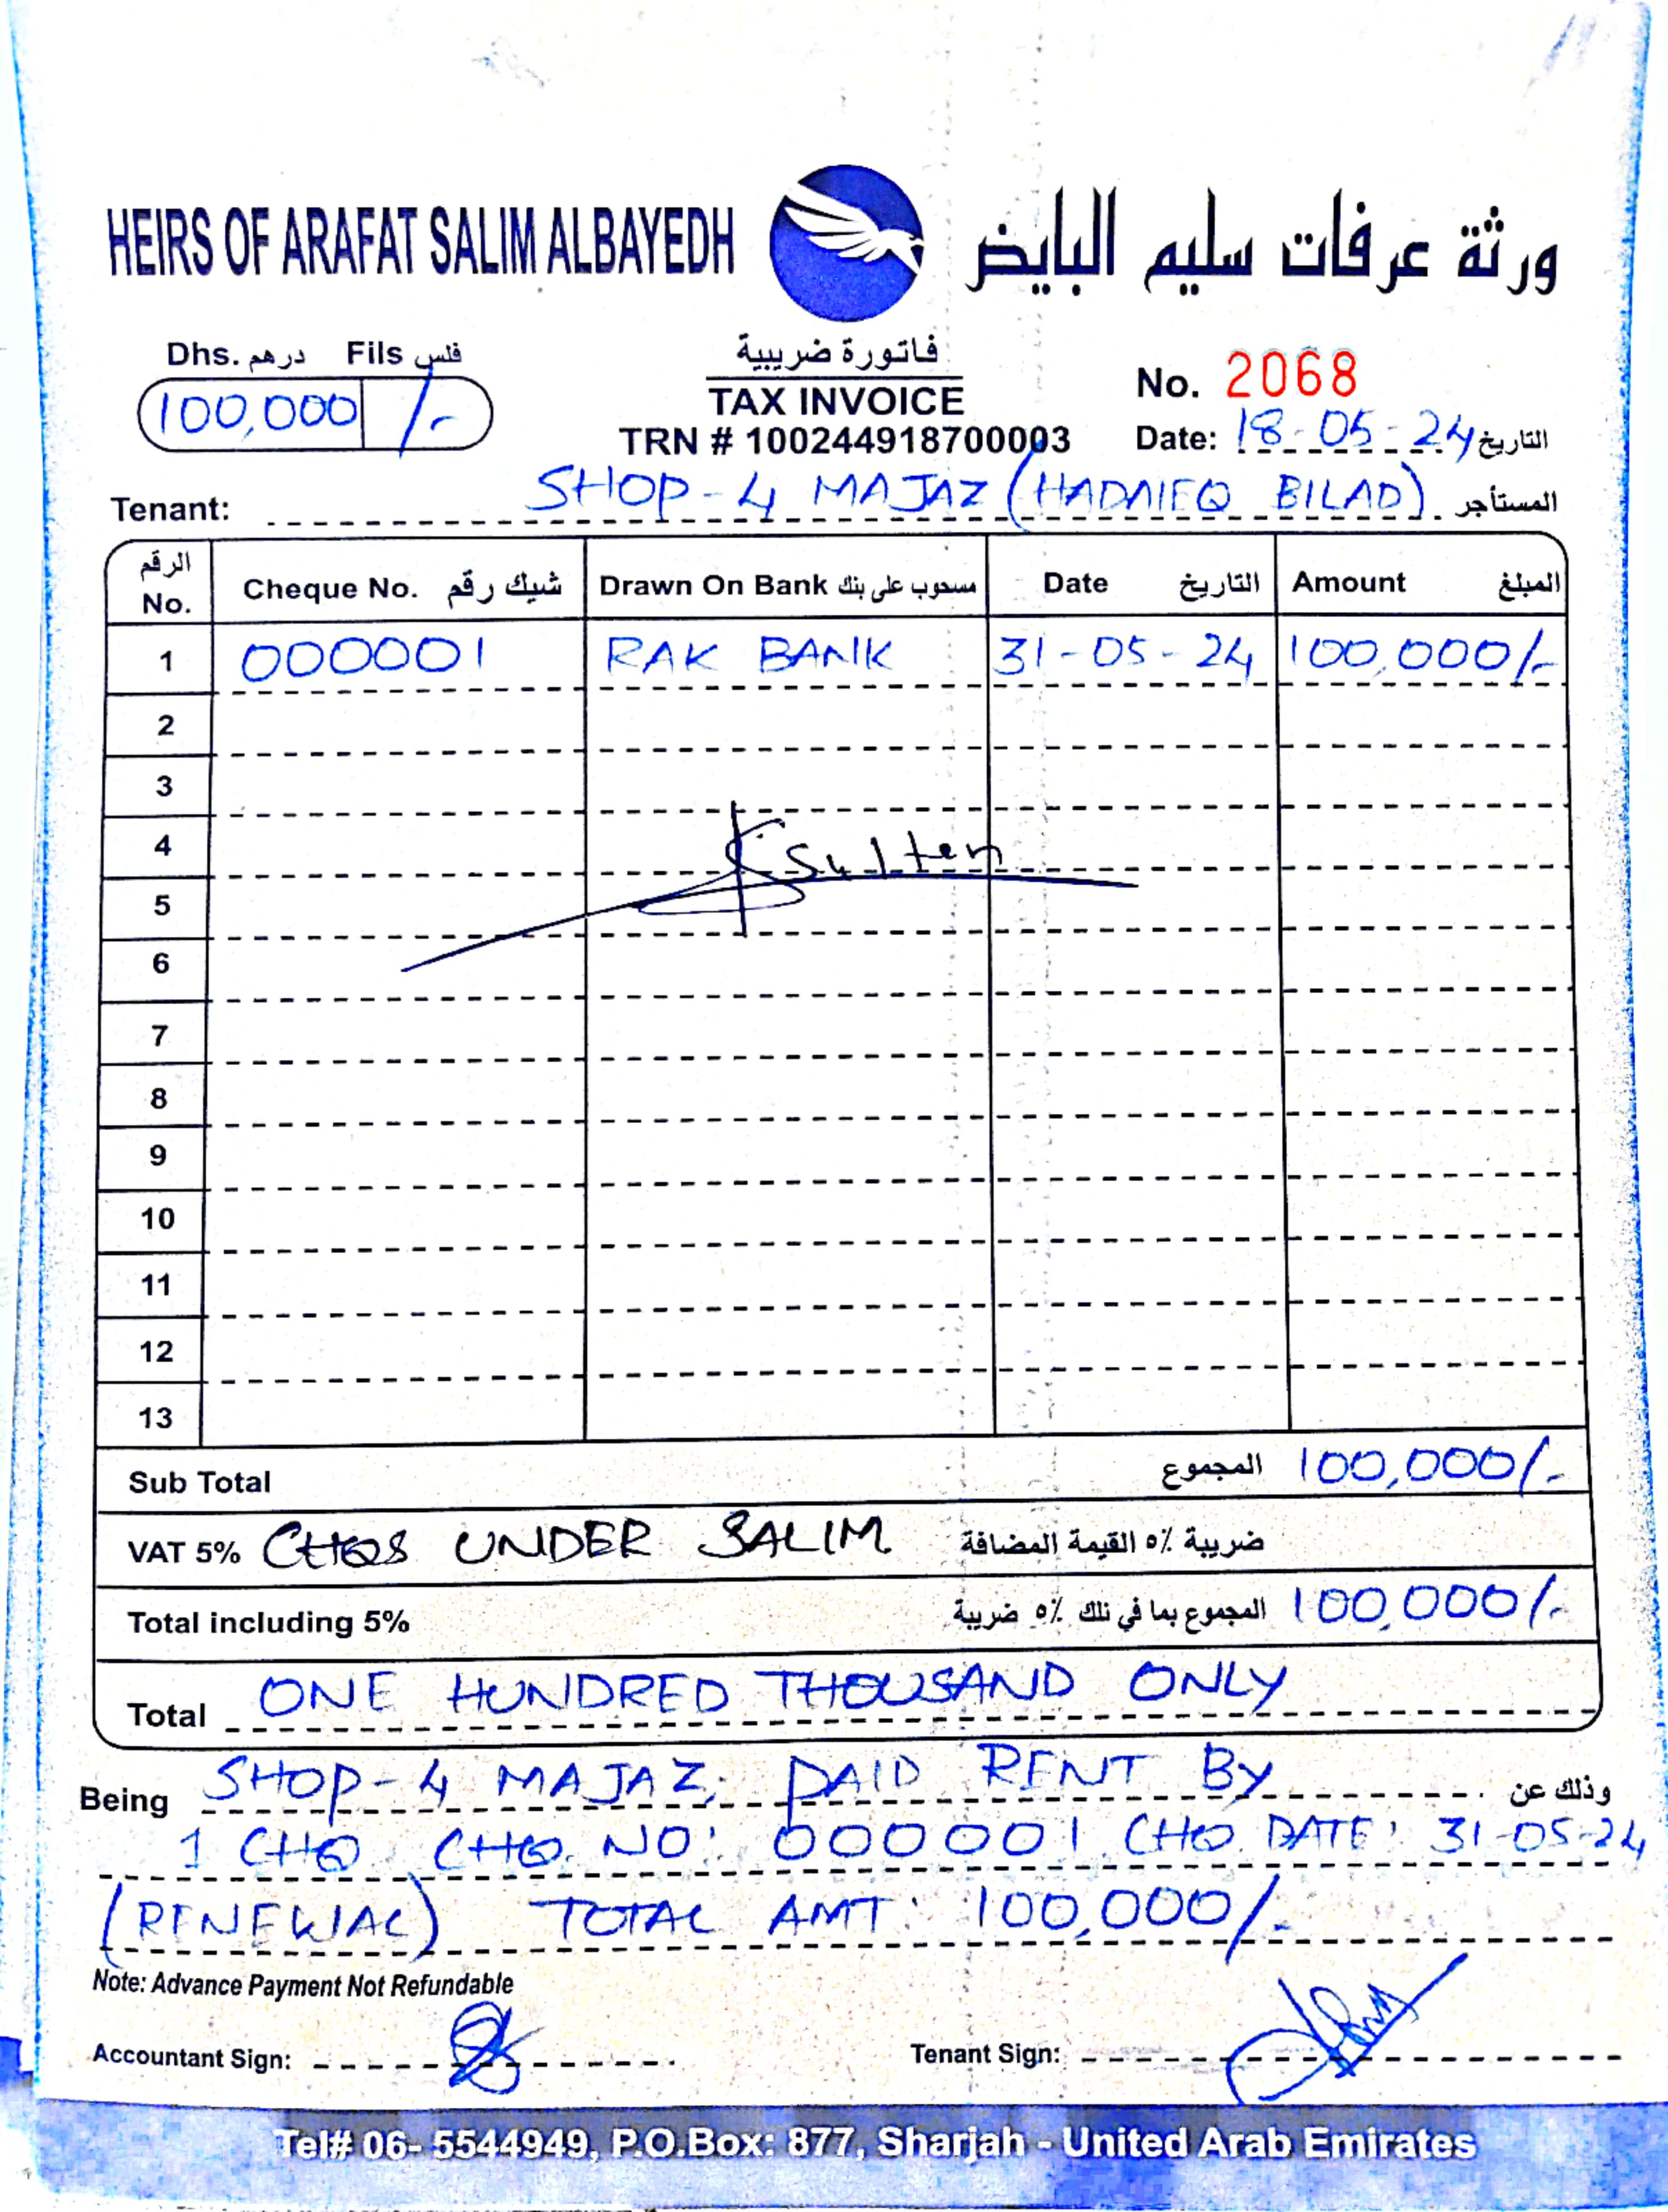 HEIRS OF ARAFAT SALIM ALBAYEDH ورثة عرفات سليم البايض
Dhs. درهم Fils فلس
100,000 /-
فاتورة ضريبية
TAX INVOICE
TRN # 100244918700003
No. 2068
Date: 18-05-24 التاريخ
Tenant: SHOP-4 MAJAZ (HADAIEQ BILAD) المستأجر
الرقم No. Cheque No. شيك رقم Drawn On Bank مسحوب على بنك Date التاريخ Amount المبلغ
1 000001 RAK BANK 31-05-24 100,000/-
2
3
4 Sulten
5
6
7
8
9
10
11
12
13
Sub Total المجموع 100,000/-
VAT 5% CHQS UNDER SALIM ضريبة ٥٪ القيمة المضافة
Total including 5% المجموع بما في تلك ٥٪ ضريبة 100,000/-
Total ONE HUNDRED THOUSAND ONLY
Being SHOP-4 MAJAZ, PAID RENT BY وذلك عن
1 CHQ CHQ. NO: 000001 CHQ DATE: 31-05-24
(RENEWAL) TOTAL AMT: 100,000/-
Note: Advance Payment Not Refundable
Accountant Sign: Tenant Sign:
Tel# 06- 5544949, P.O.Box: 877, Sharjah - United Arab Emirates